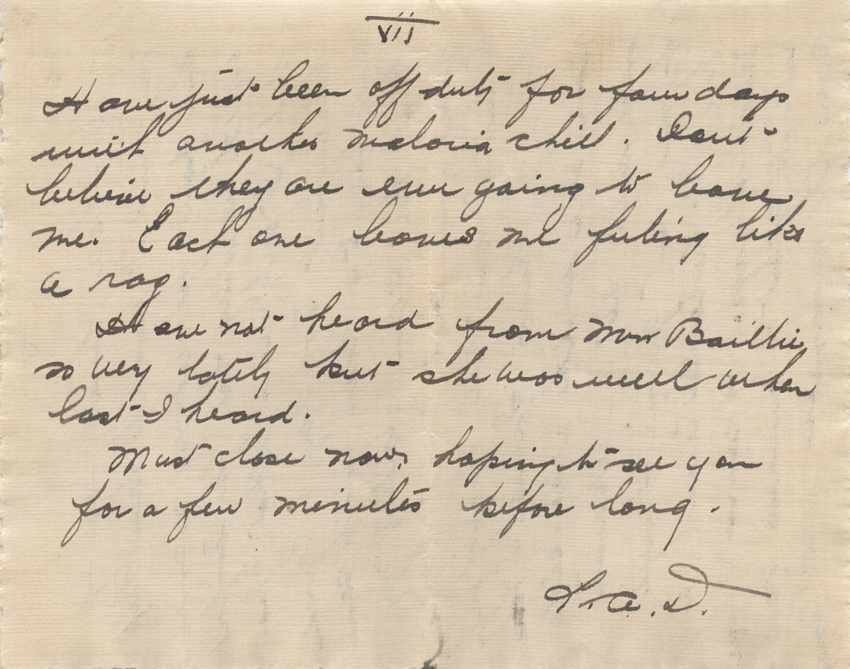 vii
Have just been off duty for four days
with another malaria chill. Dont
believe they are ever going to leave
me. Each one leaves me feeling like
a rag.
Have not heard from Mrs Baillie
so very lately but she was well when
last I heard.
Must close now, hoping to see you
for a few minutes before long.